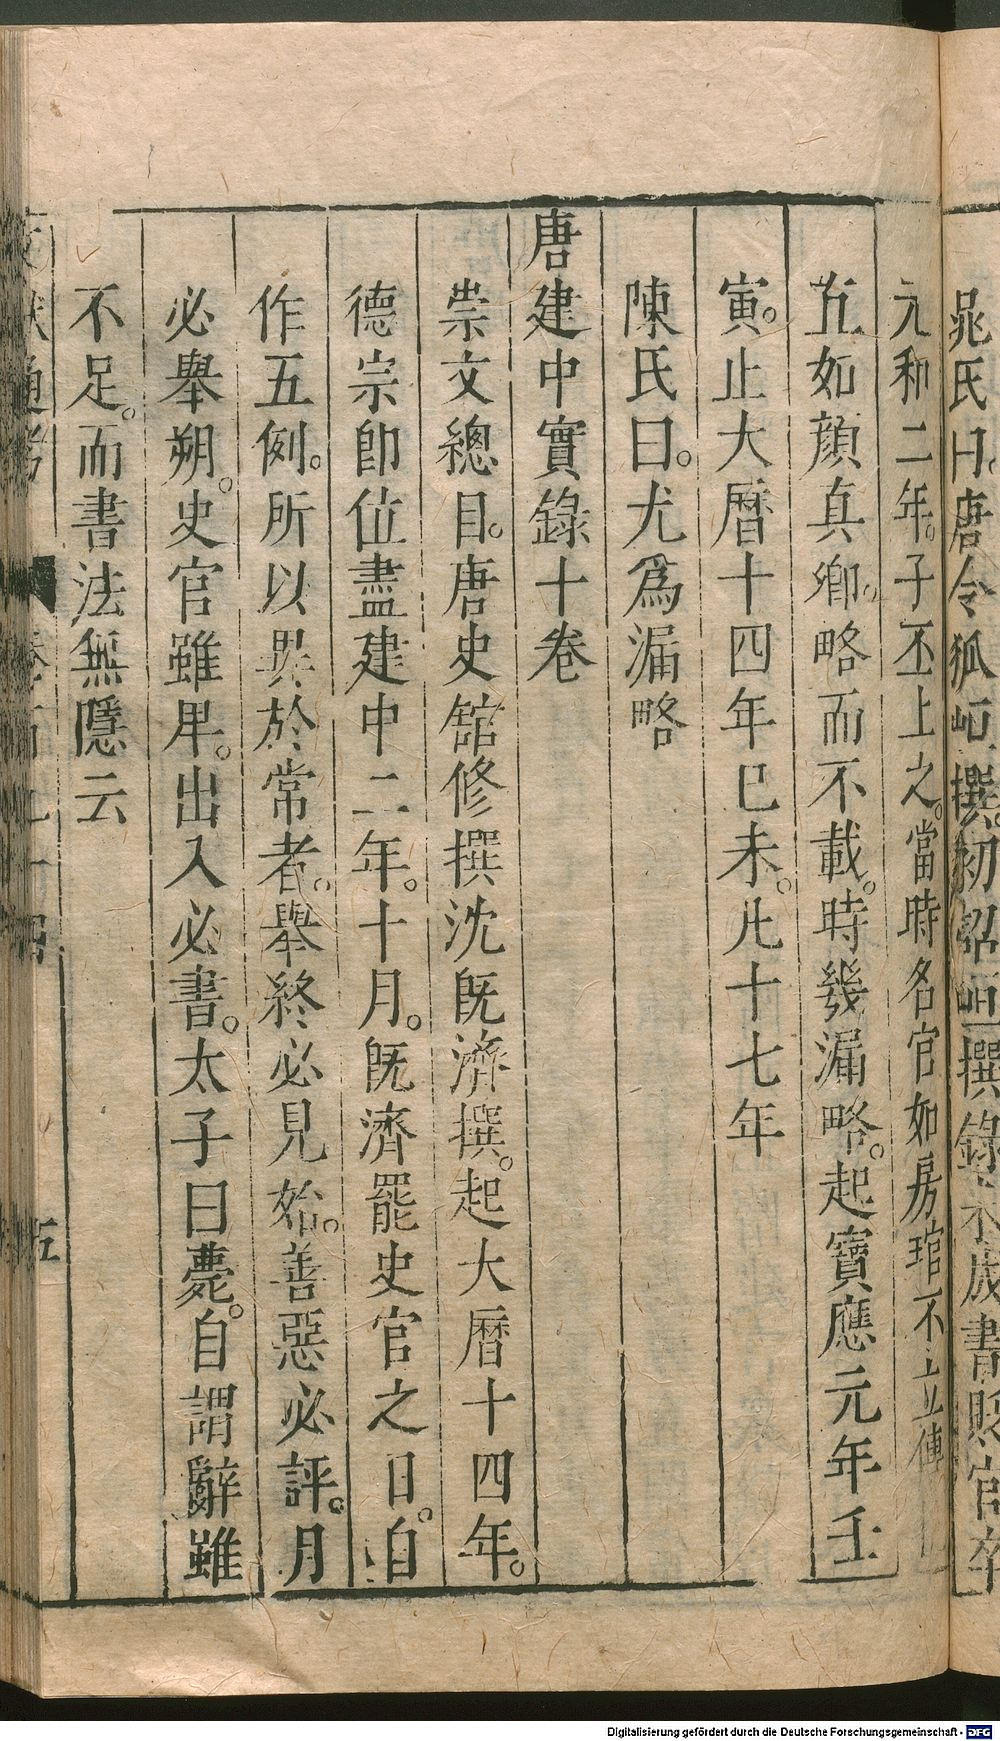 晁氏曰。唐令狐峘撰。初詔峘撰錄。未成書。貶官卒。
元和二年。子丕上之。當時名官如房琯不立傳
直如顔真卿。略而不載。時幾漏略。起寶應元年壬
寅。止大曆十四年巳未。凡十七年
陳氏曰。尤爲漏略
唐建中實錄十卷
崇文總目。唐史舘修撰沈旣濟撰。起大曆十四年。
德宗卽位盡建中二年。十月。旣濟罷史官之日。自
作五例。所以異於常者。舉終必見始。善惡必評。月
必舉朔。史官雖卑。出入必書。太子曰薨。自謂辭雖
不足。而書法無隱云
文獻通考 卷一百九十四 五
Digitalisierung gefördert durch die Deutsche Forschungsgemeinschaft - DFG